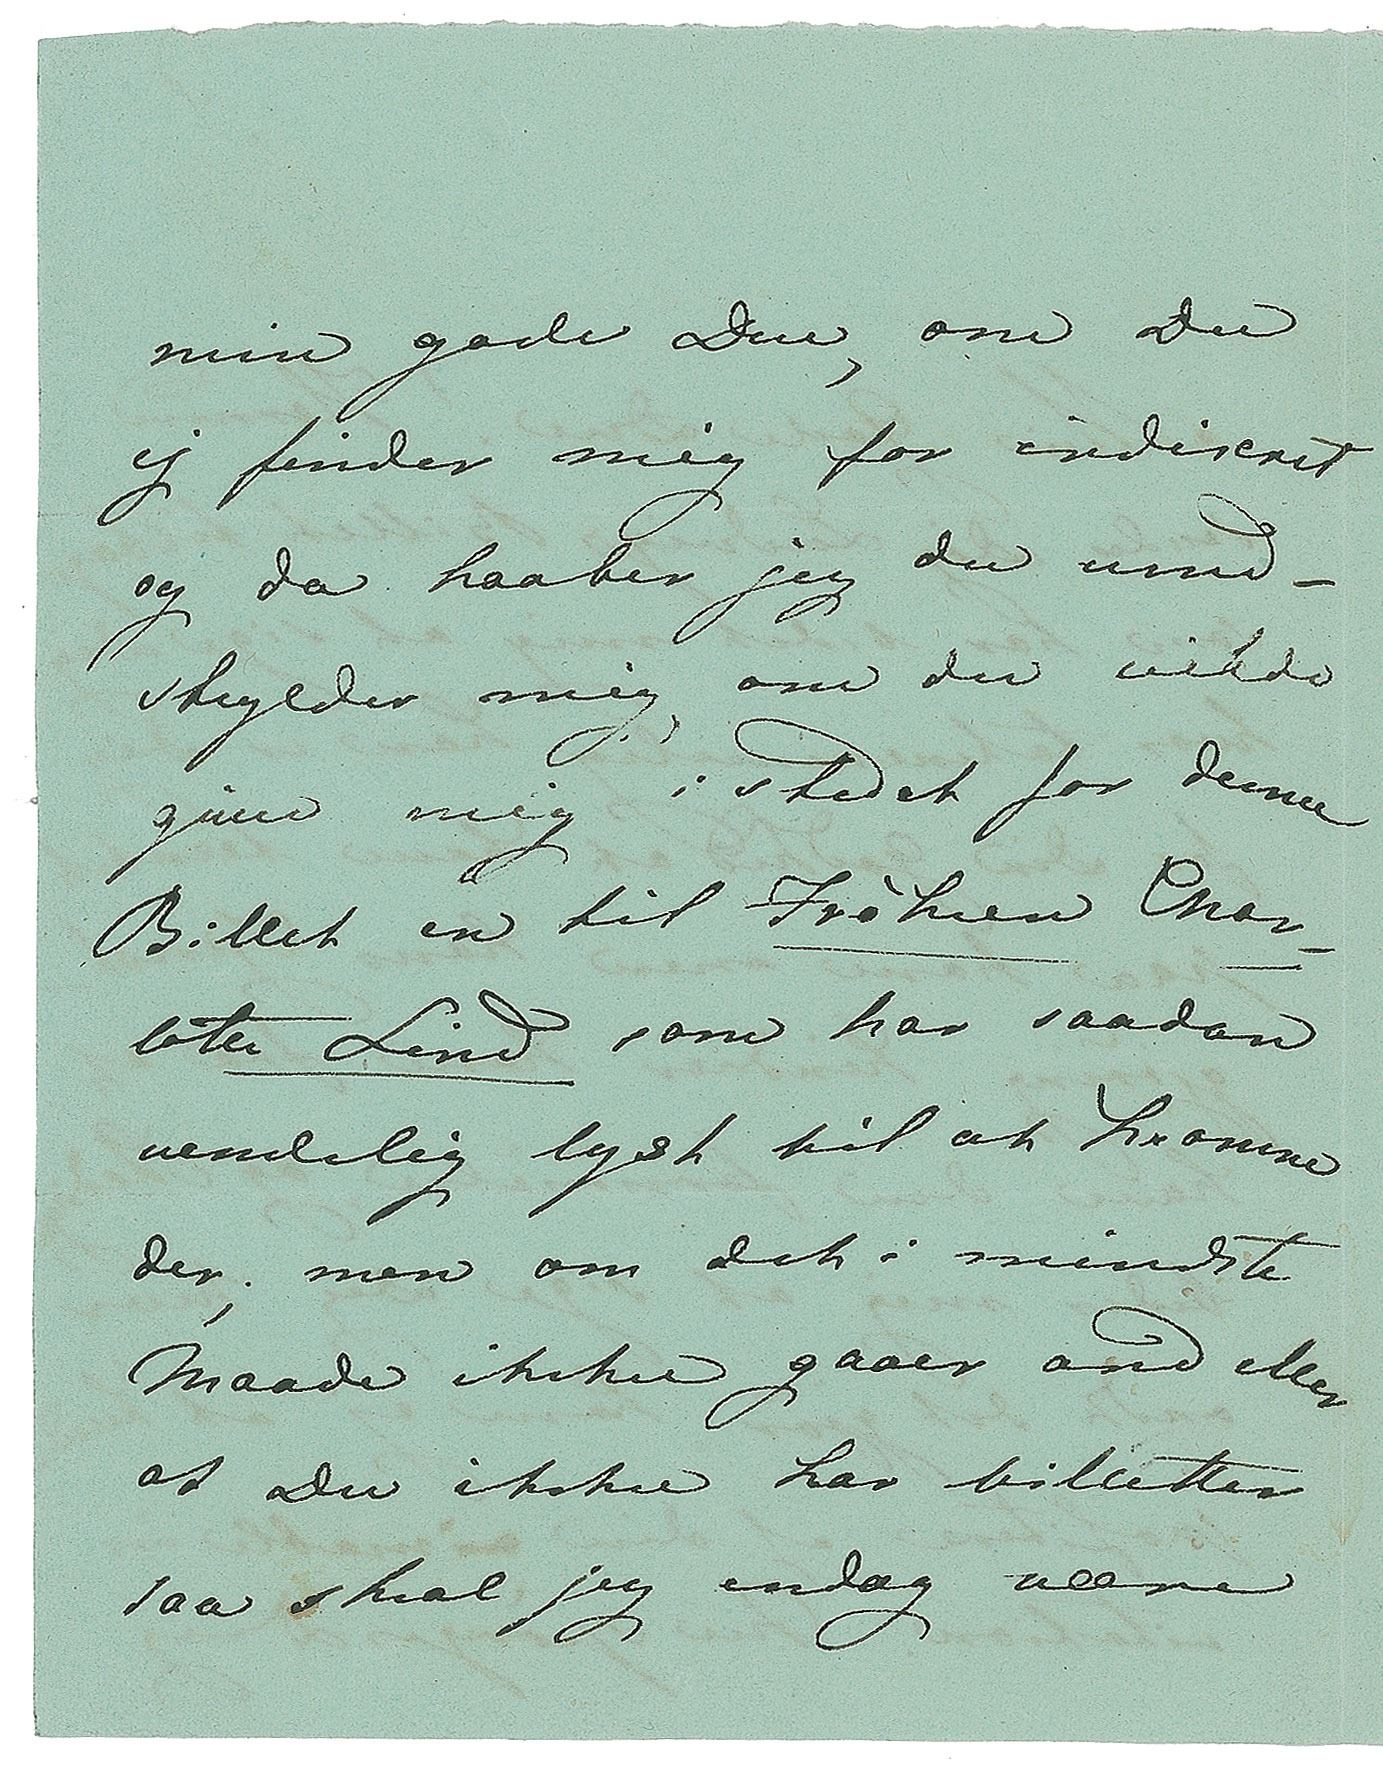 min gode Due, om Du
ej finder mig for indiscret
og da haaber jeg du und-
skylder mig, om du vilde
give mig i stedet for denne
Billet en til Fröken Char-
lotte Lind som har saadan
uendelig lyst til at komme
der, men om det i mindste
Maade ikke gaaer and eller
at Du ikke har billetter
saa skal jeg endog være